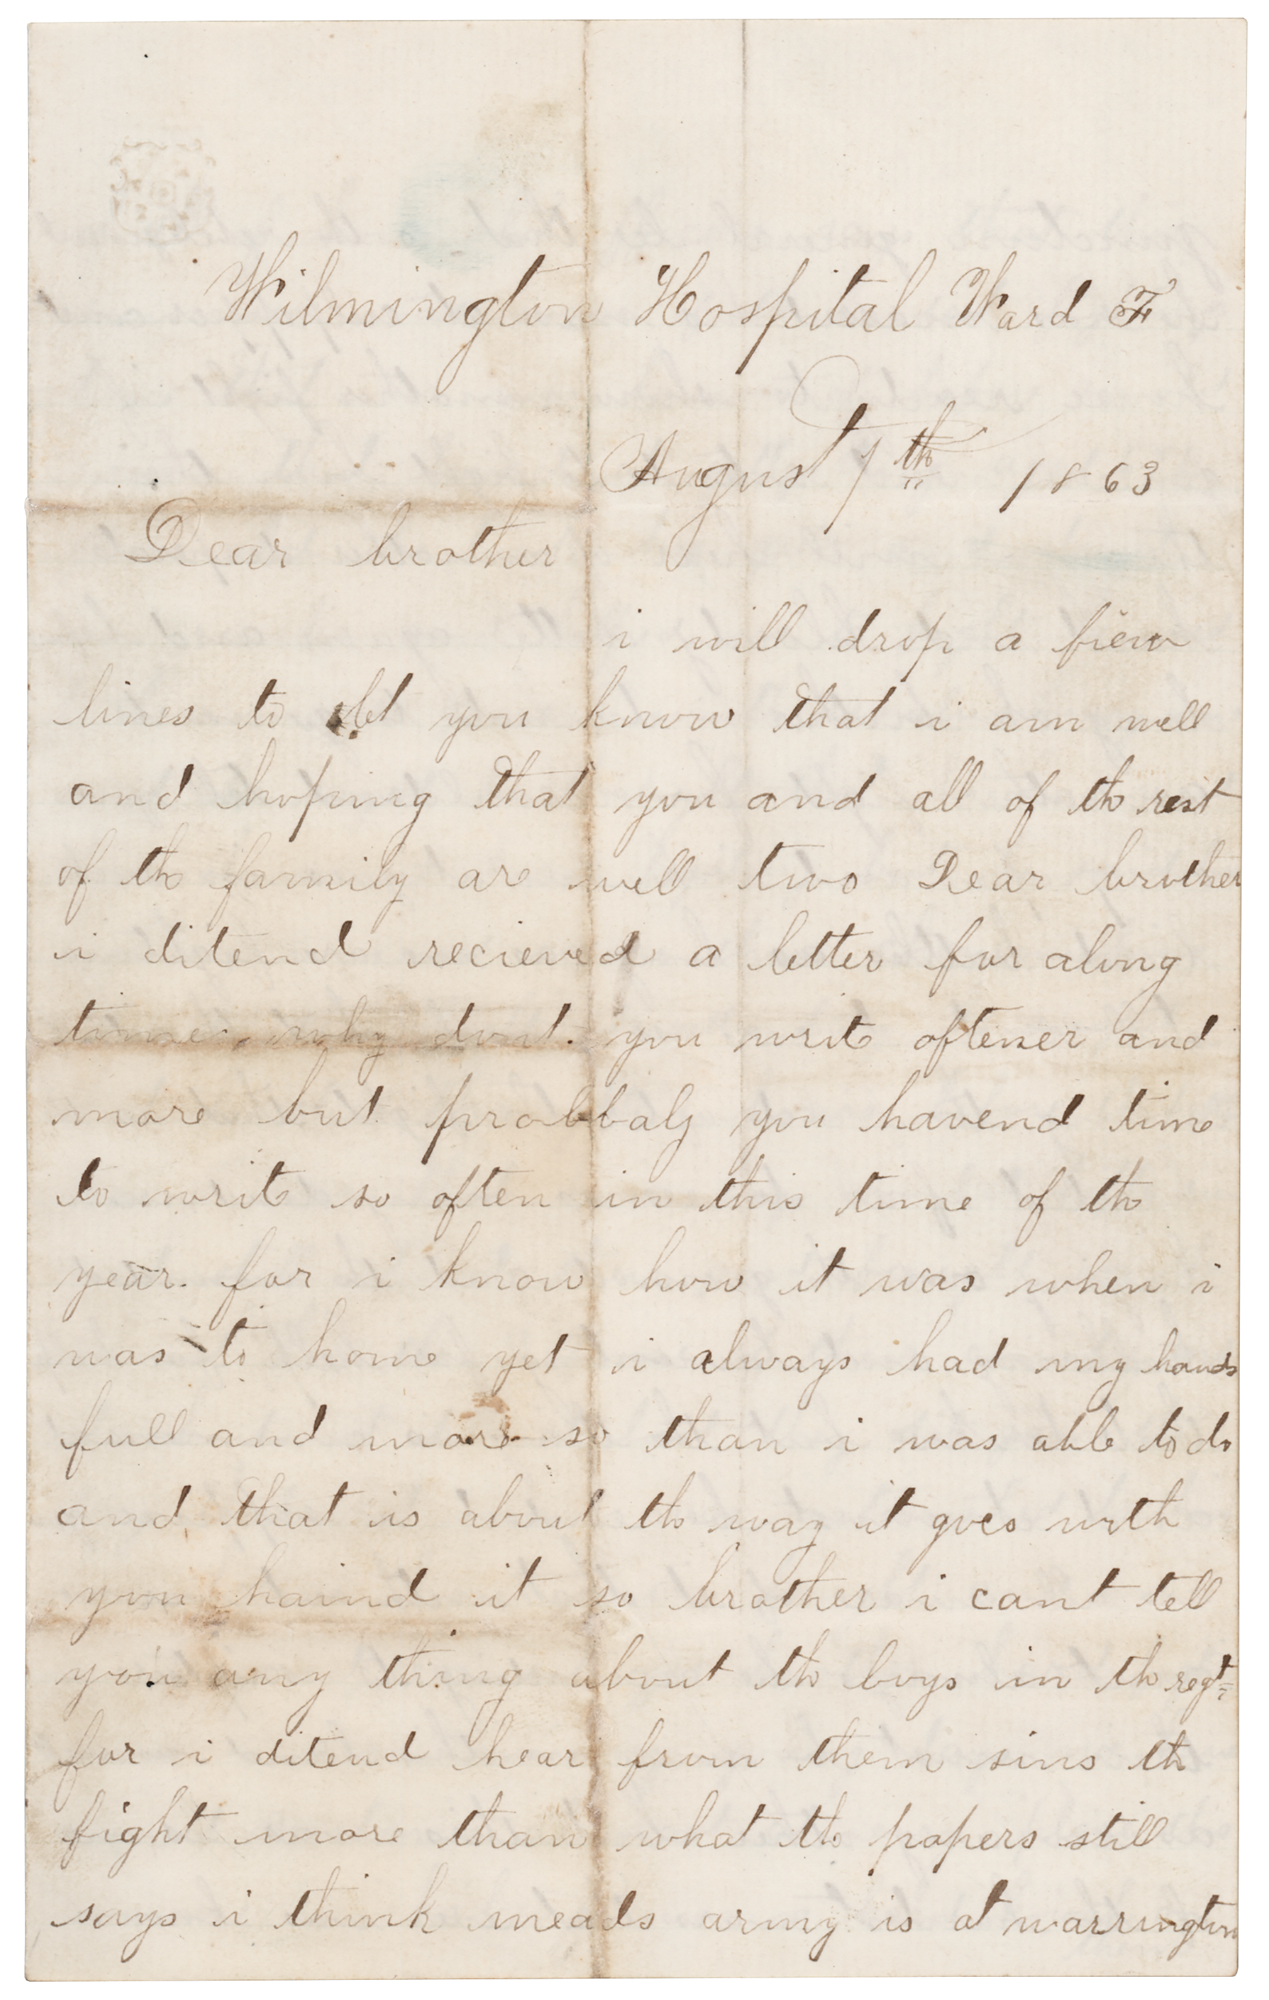 Wilmington Hospital Ward F
August 7th 1863
Dear brother
i will drop a fiew
lines to let you know that i am well
and hoping that you and all of the rest
of the family are well two Dear brother
i ditend recieved a letter for along
time why dont you write oftener and
more but probbaly you havend time
to write so often in this time of the
year. for i know how it was when i
was to home yet i always had my hands
full and more so than i was able to do
and that is about the way it goes with
you haind it so brother i cant tell
you any thing about the boys in the regt
for i ditend hear from them sins th
fight more than what the papers still
says i think meads army is at warrington